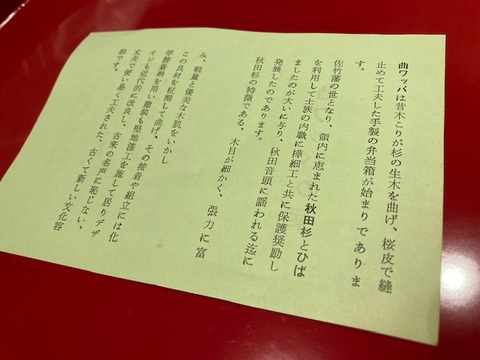 曲ワッパは昔木こりが杉の生木を曲げ、桜皮で縫
止めて工夫した手製の弁当箱が始まりでありま
す。
佐竹藩の世となり、領内に恵まれた秋田杉とひば
を利用して士族の内職に樺細工と共に保護奨励し
ましたのが大いに与り、秋田音頭に謳われる迄に
発展したのであります。
秋田杉の特徴である、木目が細かく、張力に富
み、軽量と優美な木肌をいかし
この良材を征割して曲げ、その接着や組立には化
学接着剤を用い塗装も堅地漆工を施して居りデザ
インも近代的に改良し、古来の名声に恥じない、
丈夫で使い易く工夫された、古くて新しい文化容
器です。